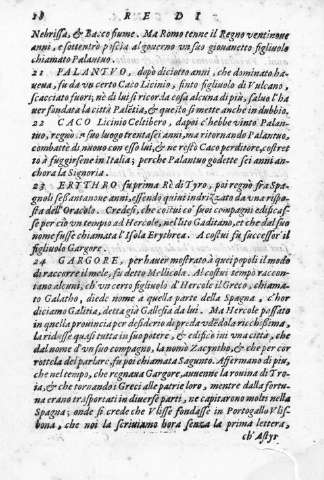 28 R E D I
Nebrissa, & Bacco fiume. Ma Romo tenne il Regno ventinoue
anni, e sottentrò poscia al gouerno vn suo giouanetto figliuolo
chiamato Palantuo.
21 PALANTVO, dopò diciotto anni, che dominato ha-
uena, fu da vn certo Caco Licinio, finto figliuolo di Vulcano,
scacciato fuori; nè di lui si ricorda cosa alcuna di più, saluo l'ha
uer fondata la città Paletia, & questo si mette anche in dubbio.
22 CACO Licinio Celtibero, dapoi c'hebbe vinto Palan-
tuo, regnò in suo luogo trentasei anni, ma ritornando Palantuo,
combattè di nuouo con esso lui, & ne restò Caco perditore, costret
to à fuggirsene in Italia; perche Palantuo godette sei anni an-
chora la Signoria.
23 ERYTHRO fu prima Rè di Tyro, poi regnò fra Spa-
gnoli sessantanoue anni, essendo quini indrizzato da vna rispo-
sta dell'Oracolo. Credesi, che costui co' suoi compagni edificas-
se per ciò vn tempio ad Hercole, nel lito Gaditano, et che dal suo
nome fusse chiamata l'Isola Erythrea. A costui fu successor il
figliuolo Gargore.
24 GARGORE, per hauer mostrato à quei popoli il modo
di raccorre il mele, fu detto Mellicola. Al costui tempo raccon-
tano alcuni, ch'vn certo figliuolo d'Hercole il Greco, chiama-
to Galatho, diede nome a quella parte della Spagna, c'hor
diciamo Galitia, detta già Gallesia da lui. Ma Hercole passato
in quella prouincia per desiderio di preda vedēdola ricchissima,
la ridusse quasi tutta in suo potere, & edificò iui vna città, che
dal nome d'vn suo compagno, la nomò Zacyntho, & che per cor
rottela del parlare, fu poi chiamata Sagunto. Affermano di più,
che nel tempo, che regnaua Gargore, auuenne la rouina di Tro-
ia, & che tornando i Greci alle patrie loro, mentre dalla fortu-
na erano trasportati in diuerse parti, ne capitarono molti nella
Spagna; onde si crede che Vlisse fondasse in Portogallo Vlis-
bona, che noi la scriuiamo hora senza la prima lettera,
ch'Astyr